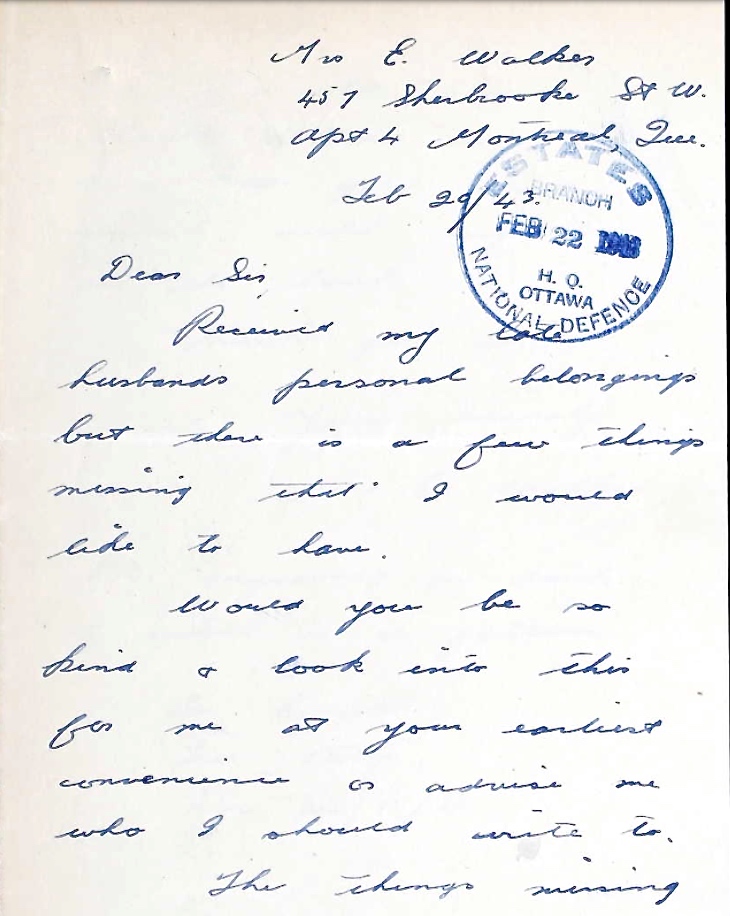 Mrs E. Walker
457 Sherbrooke St W.
Apt 4 Montreal, Que.
Feb 20/43.
ESTATES
BRANCH
FEB 22 1943
H. Q.
OTTAWA
NATIONAL DEFENCE
Dear Sir
Received my late
husbands personal belongings
but there is a few things
missing that I would
like to have.
Would you be so
kind & look into this
for me at your earliest
convenience or advise me
who I should write to.
The things missing